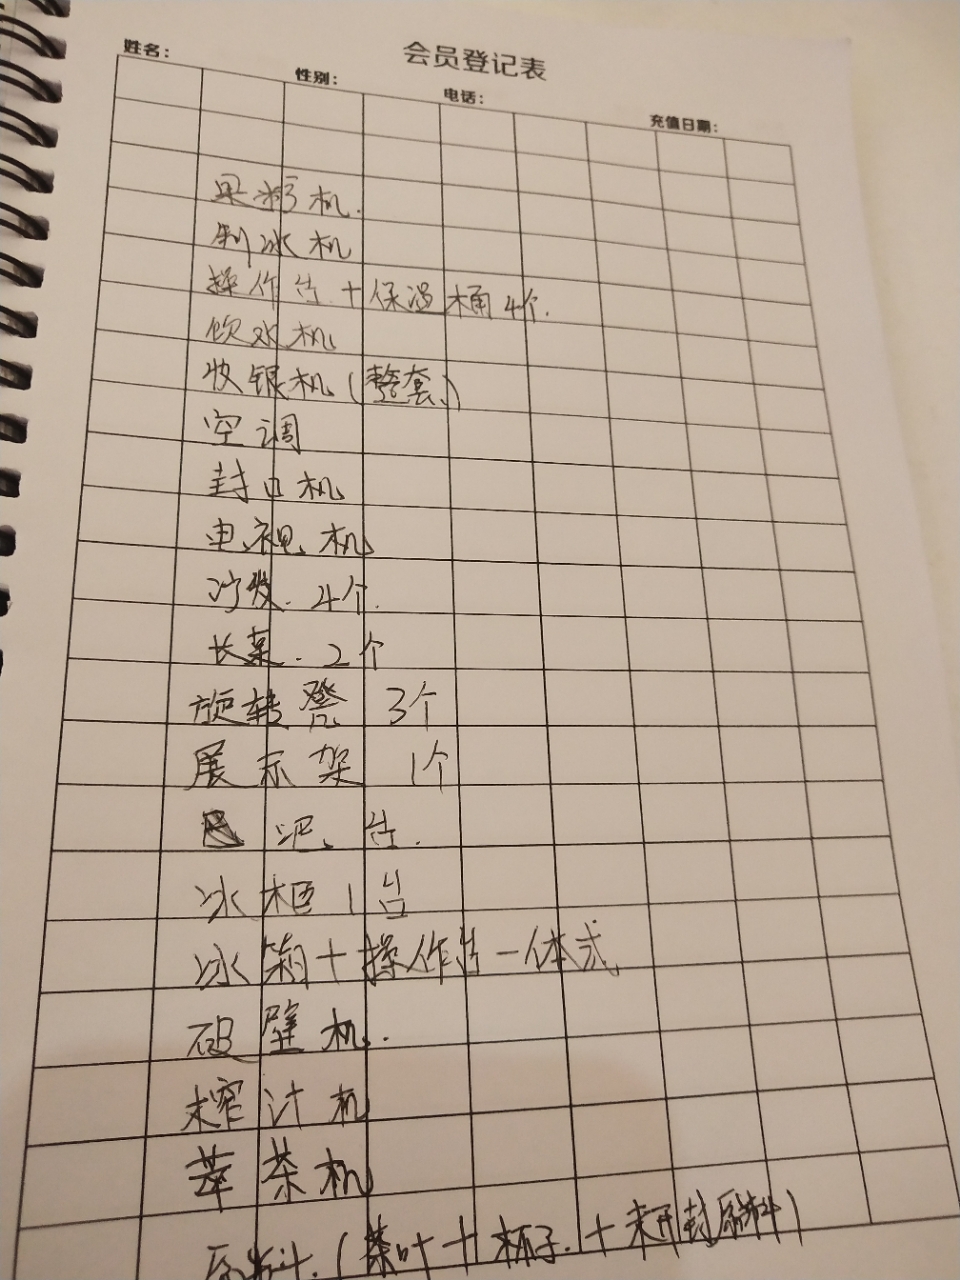 会员登记表
姓名： 性别： 电话： 充值日期：
果粉机.
制冰机
操作台.+保温桶4个.
饮水机
收银机(整套)
空调
封口机
电视机
沙发.4个.
长桌.2个
旋转凳 3个
展示架 1个
吧台.
冰柜1台
冰箱+操作台一体式
破壁机.
榨汁机
萃茶机
原料.(茶叶+杯子.+未开封原料)